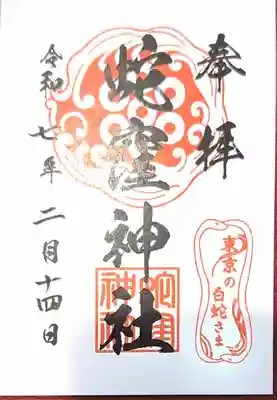 奉拝
東京の
白蛇さま
蛇窪神社
蛇窪
神社
令和七年二月十四日